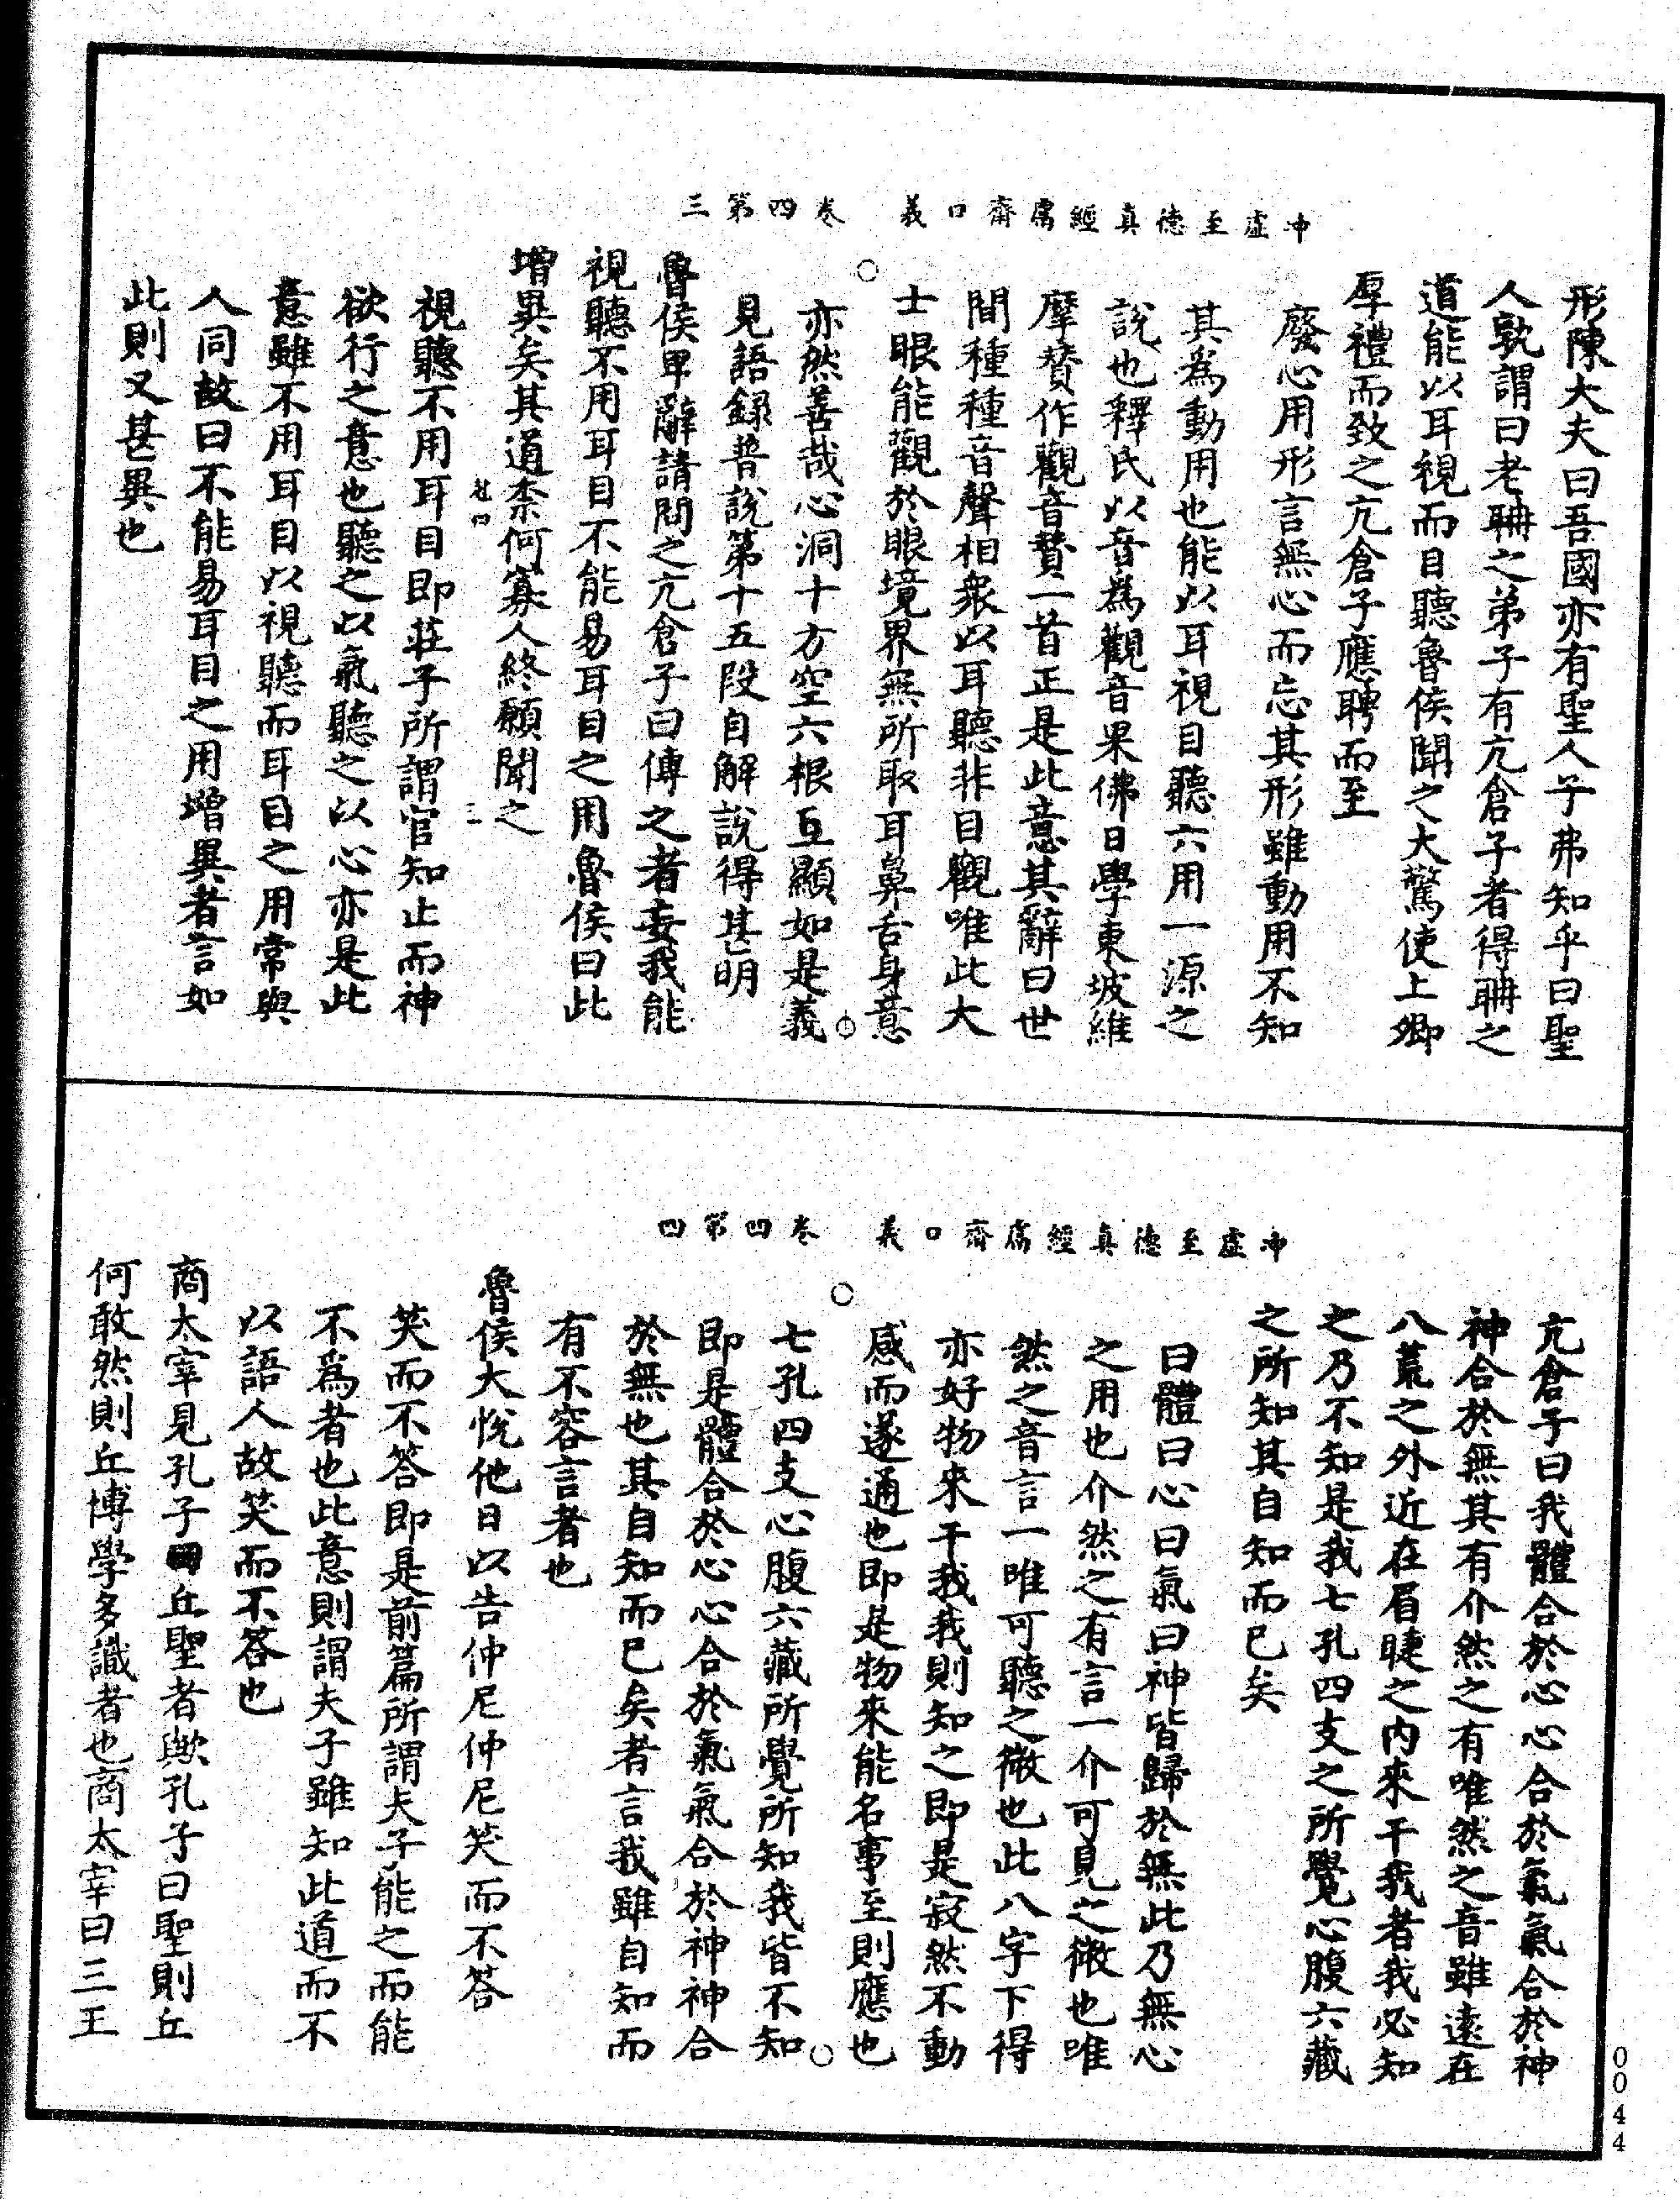 冲虛至德真經鬳齋口義　卷四第三
形陳大夫曰吾國亦有聖人子弗知乎曰聖
人孰謂曰老聃之弟子有亢倉子者得聃之
道能以耳視而目聽魯侯聞之大驚使上卿
厚禮而致之亢倉子應聘而至
廢心用形言無心而忘其形雖動用不知
其為動用也能以耳視目聽六用一源之
說也釋氏以音為觀音果佛日學東坡維
摩贊作觀音贊一首正是此意其辭曰世
間種種音聲相衆以耳聽非目觀唯此大
士眼能觀於眼境界無所取耳鼻舌身意
亦然善哉心洞十方空六根互顯如是義
見語録普說第十五段自解說得甚明
魯侯卑辭請問之亢倉子曰傳之者妄我能
視聽不用耳目不能易耳目之用魯侯曰此
增異矣其道柰何寡人終願聞之
三
視聽不用耳目即莊子所謂官知止而神
欲行之意也聽之以氣聽之以心亦是此
意雖不用耳目以視聽而耳目之用常與
人同故曰不能易耳目之用增異者言如
此則又甚異也
冲虛至德真經鬳齋口義　卷四第四
亢倉子曰我體合於心心合於氣氣合於神
神合於無其有介然之有唯然之音雖遠在
八荒之外近在眉睫之內來干我者我必知
之乃不知是我七孔四支之所覺心腹六藏
之所知其自知而已矣
曰體曰心曰氣曰神皆歸於無此乃無心
之用也介然之有言一介可見之微也唯
然之音言一唯可聽之微也此八字下得
亦好物來干我我則知之即是寂然不動
感而遂通也即是物來能名事至則應也
七孔四支心腹六藏所覺所知我皆不知
即是體合於心心合於氣氣合於神神合
於無也其自知而已矣者言我雖自知而
有不容言者也
魯侯大悅他日以告仲尼仲尼笑而不答
笑而不答即是前篇所謂夫子能之而能
不爲者也此意則謂夫子雖知此道而不
以語人故笑而不答也
商太宰見孔子曰丘聖者歟孔子曰聖則丘
何敢然則丘博學多識者也商太宰曰三王
0044